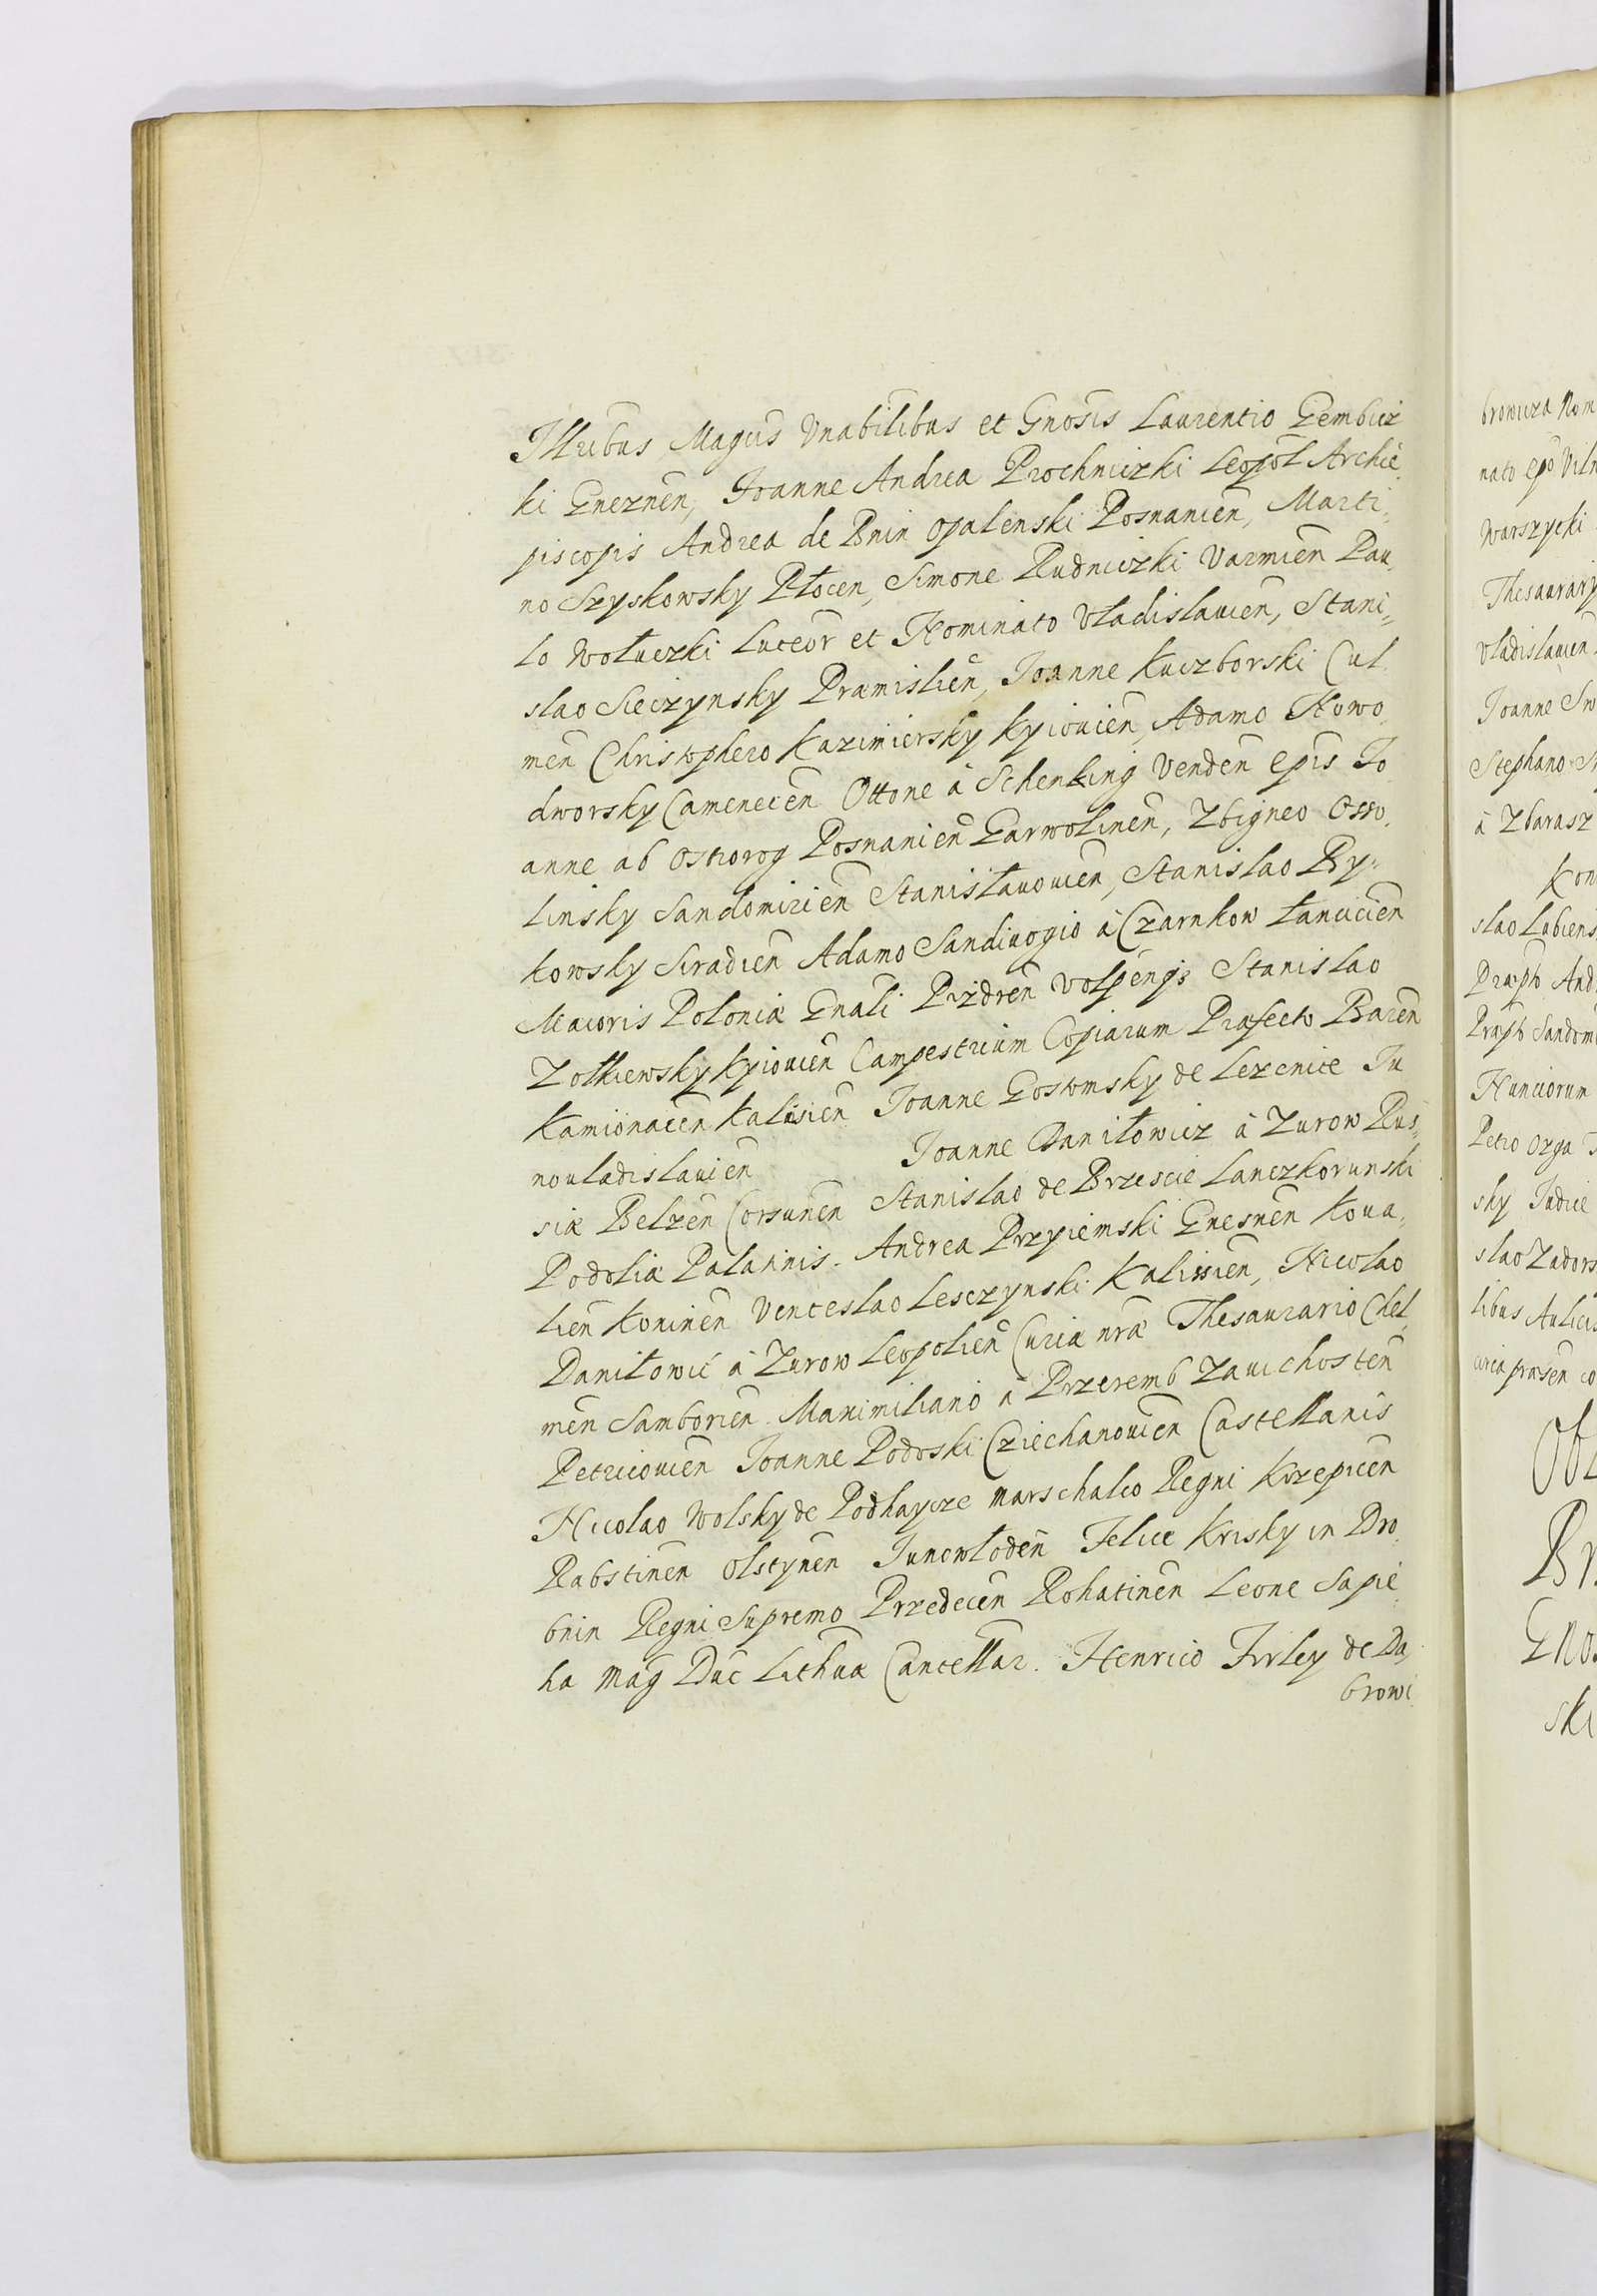 Illribus Magcis Vnabilibus et Gnosis Laurentio Gembicz
ki Gneznen̄, Joanne Andrea Prochniczki Leopol Archie
piscopis Andrea de Bnin Opalenski Posnanien̄, Marti:
no Szyskowsky Płocen, Simone Rudniczki Varmien̄ Pau
lo Wołuczki Luceor̄ et Nominato Vladislauien̄, Stani=
slao Sieczynsky Præmislien̄, Joanne Kuczborski Cul
men̄ Christophero Kazimiersky Kyiouien̄, Adamo Nowo
dworsky Camenecen̄ Ottone à Schenking Venden̄ Epis Jo
anne ab Ostrorog Posnanien̄ Garwolinen̄, Zbigneo Osso
linsky Sandomirien̄ Stanisłauouien̄, Stanislao By=
kowsky Siradien̄ Adamo Sandiuogio à Czarnkow Łancicien̄
Maioris Poloniæ Gnali Pizdren̄ Volpen̄qꝫ Stanislao
Zołkiewsky Kyiouien̄ Campestrium Copiarum Præfecto Baren̄
Kamionacen̄ Kalusien̄ Joanne Gostomsky de Lezenice Ju
nouladislauien̄ Joanne Daniłowicz à Zurow Rus=
siæ Belzen̄ Corsunen̄ Stanislao de Brzescie Lanczkorunski
Podoliæ Palatinis. Andrea Przyiemski Gnesnen̄ Koua=
lien̄ Koninen̄ Venceslao Lesczynski Kalissien̄, Nicolao
Daniłowic à Zurow Leopolien̄ Curiæ nræ Thesaurario Chel
men̄ Samborien̄ Maximiliano à Przeremb Zauichosten̄
Petricouien̄ Joanne Podoski Cziechanouien̄ Castellanis
Nicolao Wolsky de Podhaycze Marschalco Regni Krzepicen̄
Rabstinen̄ Olstynen̄ Junowłoden̄ Felice Krisky in Dro
bnin Regni Supremo Przedecen̄ Rohatinen̄ Leone Sapie
ha Mag Duc Lithuæ Cancellar. Henrico Firley de Da
browi
browicza Nom
nato Epo Viln
Warszycki
Thesaurarij
Vladislauien
Joanne Sw
Stephano
à Zbarasz
Kon
slao Lubiens
Præpto And
Præpto Sandomi
Nunciorum
Petro Ozga
sky Judice
slao Zadors
libus Aulicis
circa præsen co
Obl
Br
Gno
ski